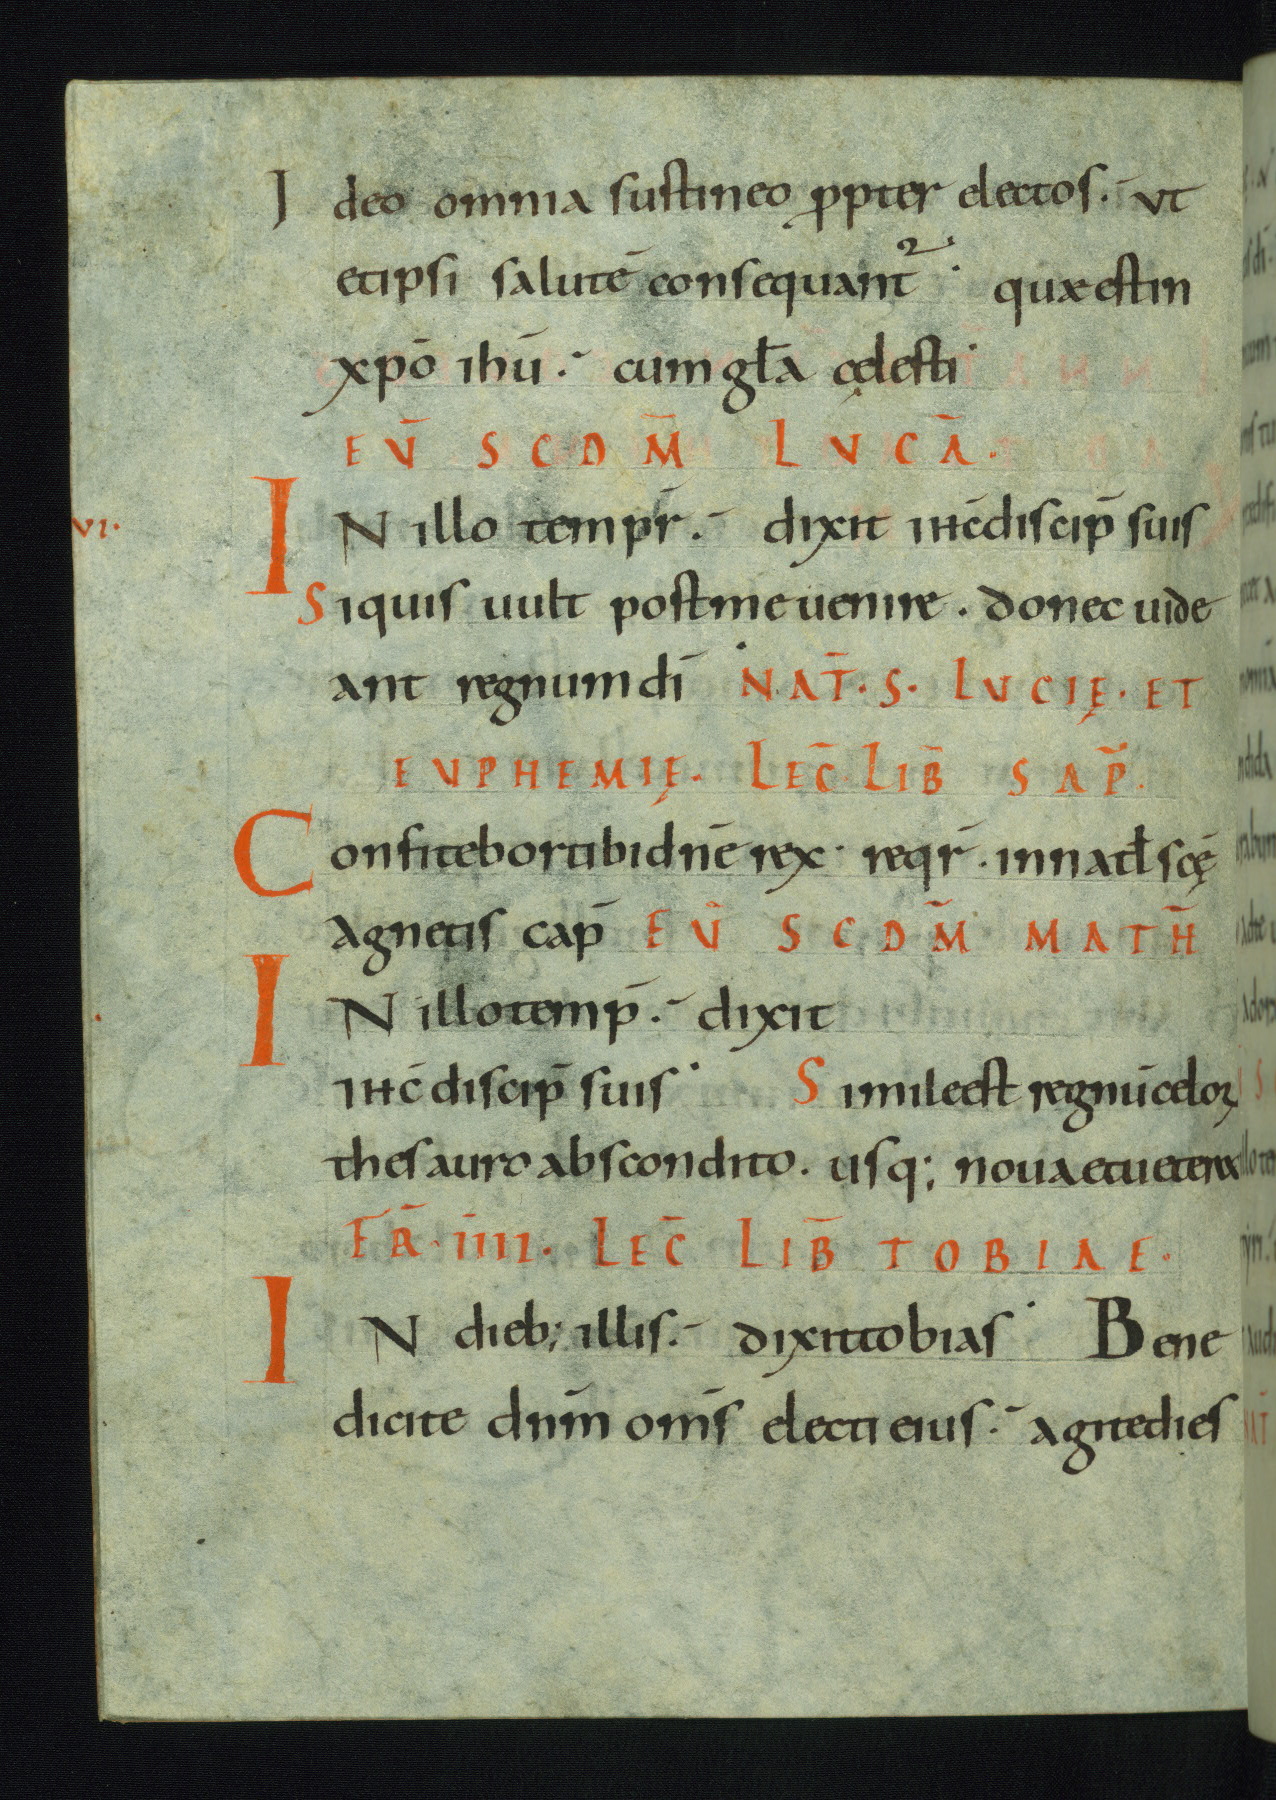 Ideo omnia sustineo ꝓpter electos. ut
et ipsi salutē consequant᷑. quae est in
xp̄o ihū. cum gl̄a cęlesti
EV̄ SCDM̄ LVCĀ.
VI. IN illo tempr̄. dixit ihc̄ discip̄ suis
Siquis uult post me uenire. donec uide
ant regnum dī NAT̄. S. LVCIĘ. ET
EVPHEMIĘ. LEC̄. LIB̄ SAP̄.
Confitebor tibi dn̄e rex. reqr̄. in natł scę̄
agnetis cap̄ EV̄ SCDM̄ MATH̄
IN illo temp̄. dixit
ihc̄ discip̄ suis Simile est regnū celoꝝ
thesauro abscondito. usq; noua et uetera
FR̄. IIII. LEC̄ LIB̄ TOBIAE.
IN dieb; illis. dixit tobias Bene
dicite dn̄m om̄s electi eius. agite dies